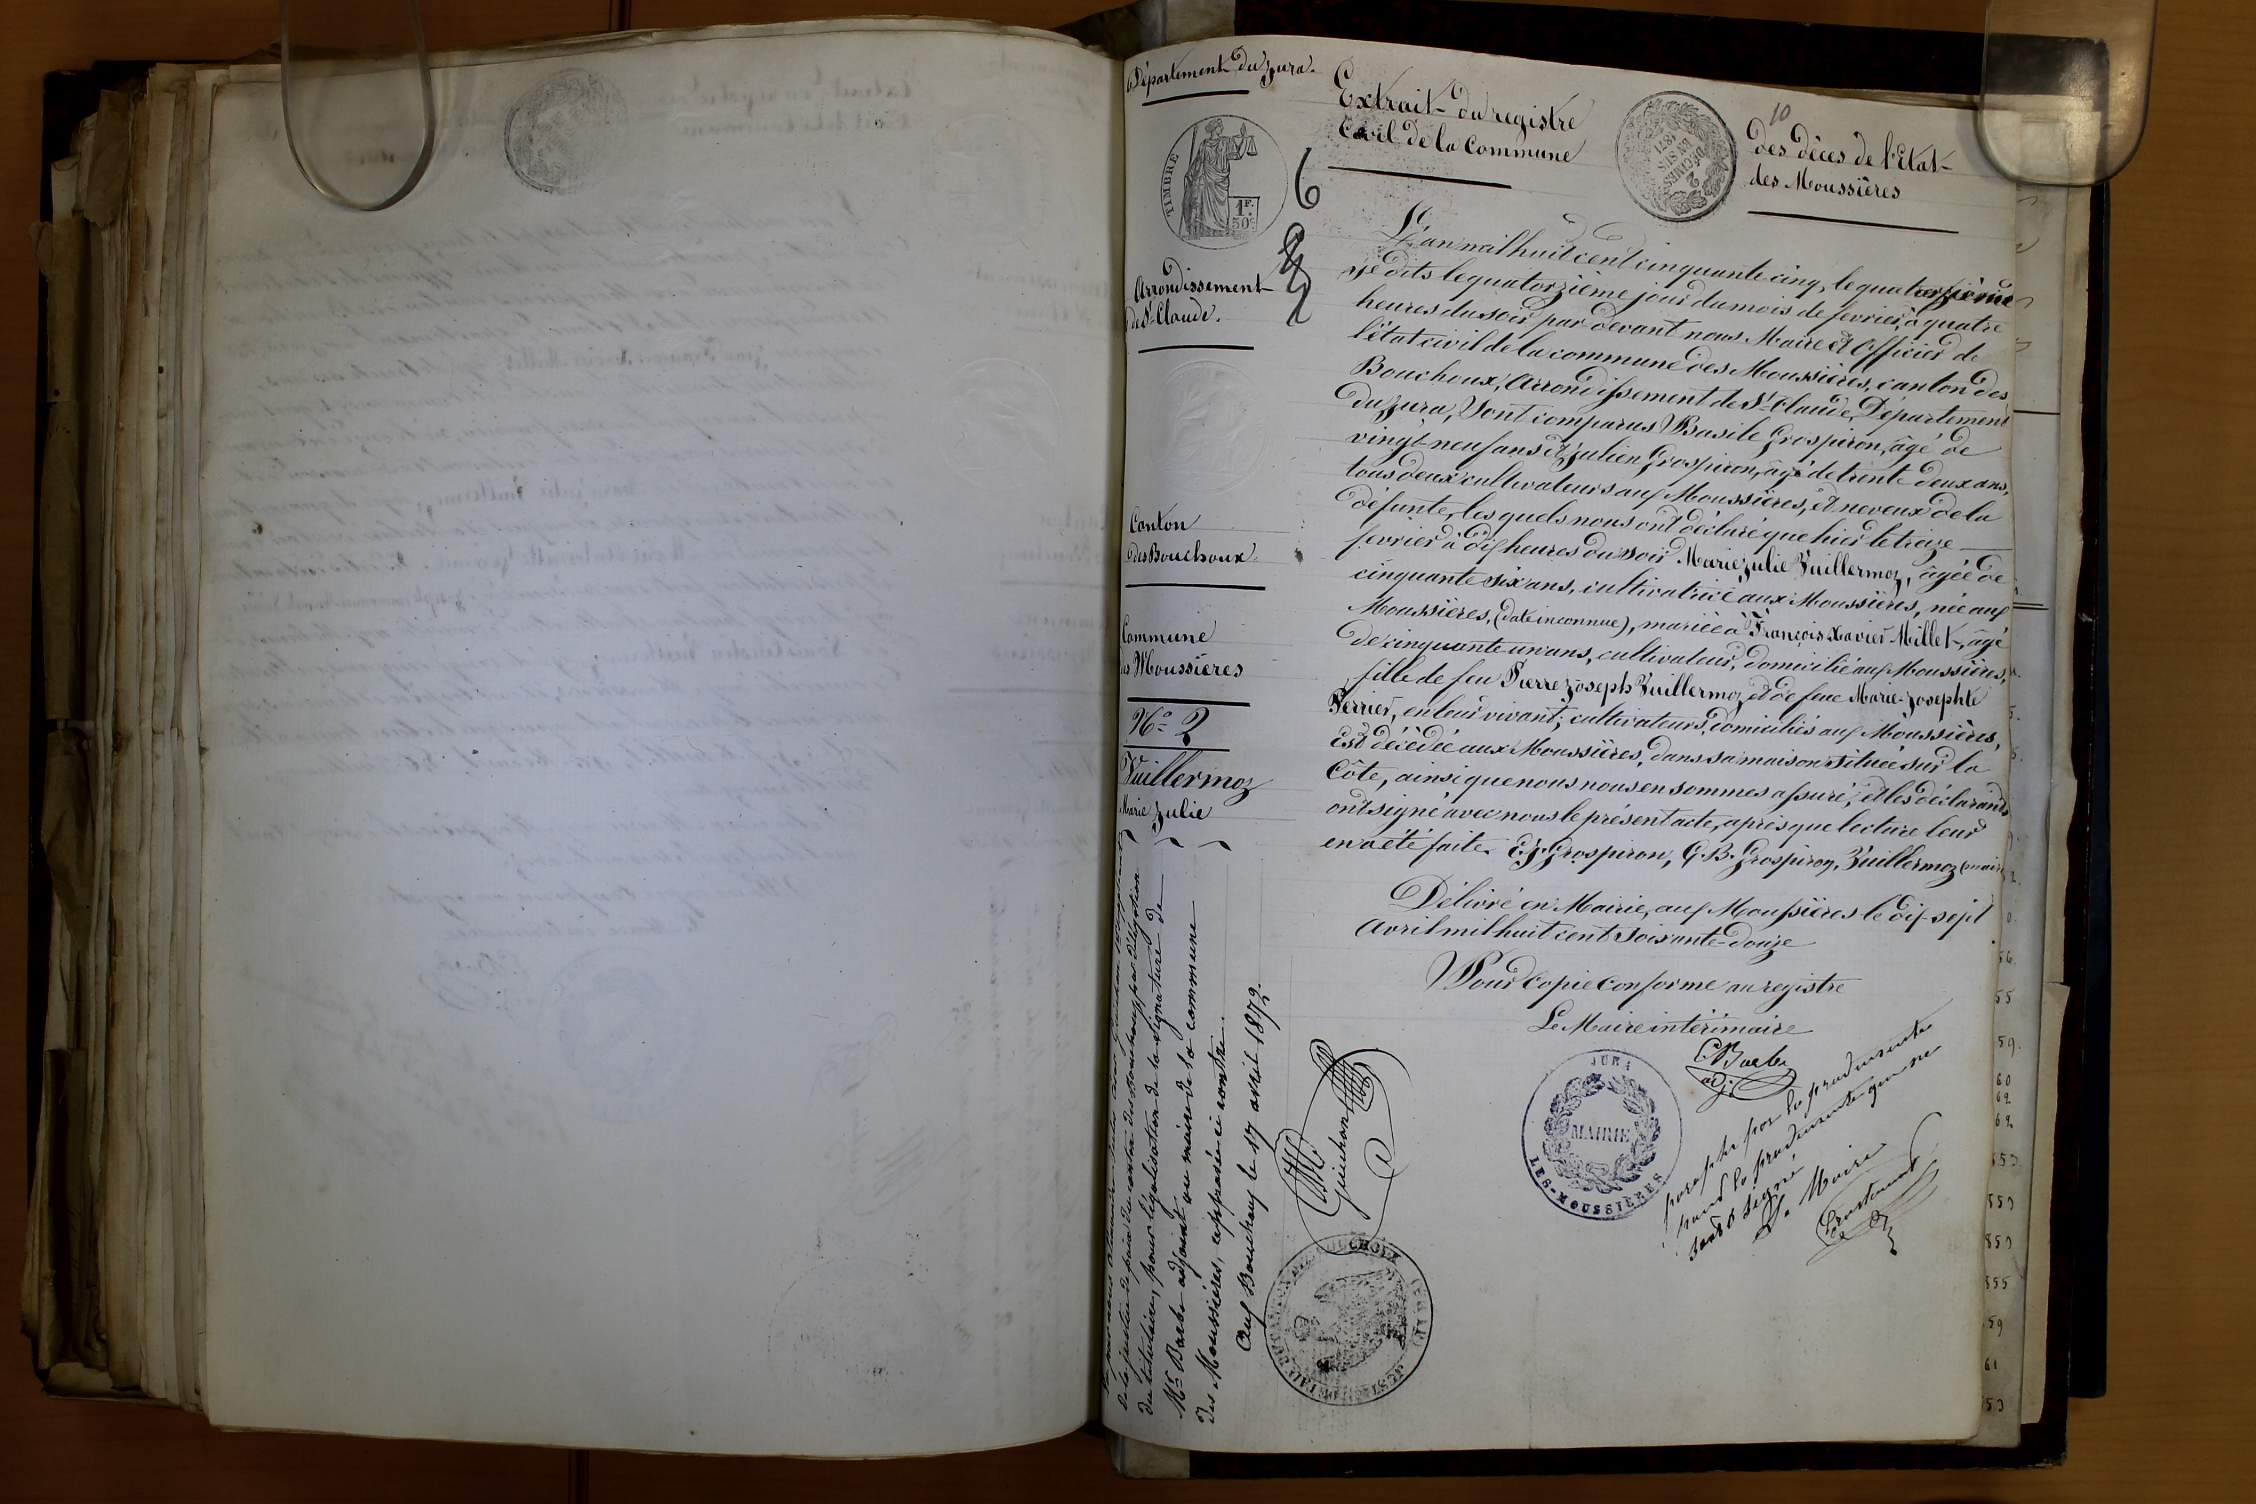 Département du Jura.
Extrait du registre
Civil de la Commune
10
des décès de l'État
des Moussières
TIMBRE
1F.
50c
2 DÉCIMES
EN SUS
1871
6
Arrondissement
de St Claude.
Canton
des Bouchoux.
Commune
des Moussières
No 2
Vuillermoz
Marie Julie
L'an mil huit cent cinquante cinq, le quatorzième
je dits le quatorzième jour du mois de fevrier, à quatre
heures du soir par devant nous Maire et Officier de
l'état civil de la commune des Moussières, canton des
Bouchoux, Arrondissement de St Claude, Département
du Jura, Sont comparus Basile Grospiron, âgé de
vingt-neuf ans et Julien Grospiron, âgé de trente deux ans,
tous deux cultivateurs aux Moussières, et neveux de la
défunte, les quels nous ont déclaré que hier le treize
fevrier à dix heures du soir Marie Julie Vuillermoz, âgée de
cinquante six ans, cultivatrice aux Moussières, née aux
Moussières, (date inconnue), mariée à François Xavier Millet, âgé
de cinquante un ans, cultivateur, domicilié aux Moussières,
fille de feu Pierre Joseph Vuillermoz et de feue Marie-Josephte
Perrier, en leur vivant, cultivateurs, domiciliés aux Moussières,
Est décédée aux Moussières, dans sa maison située sur la
Côte, ainsi que nous nous en sommes assuré, et les déclarants
ont signé avec nous le présent acte, après que lecture leur
en a été faite. E. J. Grospiron, G. B. Grospiron, Vuillermoz maire
Délivré en Mairie, aux Moussières le dix-sept
Avril mil huit cent soixante-douze
Pour copie conforme au registre
Le Maire intérimaire
Barbe
adj.
JURA
MAIRIE
LES-MOUSSIÈRES
paraphé par la produisante
sans signé
Le Maire
de la justice de paix du canton des Bouchoux par délégation
du titulaire, pour légalisation de la signature de
Mr Barbe adjoint au maire de la commune
des Moussières, apposée ci contre.
Aux Bouchoux le 17 avril 1872.
Guichon
56.
55
59.
60
62
62
853
853
853
855
59
61
53